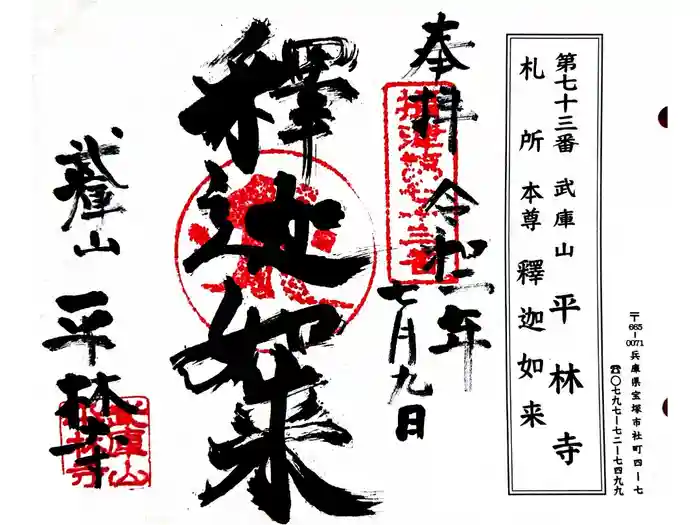 〒665-0071 兵庫県宝塚市社町四ー七
☎〇七九七ー七二ー七四九九
第七十三番 武庫山 平林寺
札所 本尊 釋迦如来
奉拝 令和二年
七月九日
摂津第七十三番
釋迦如来
武庫山
平林寺